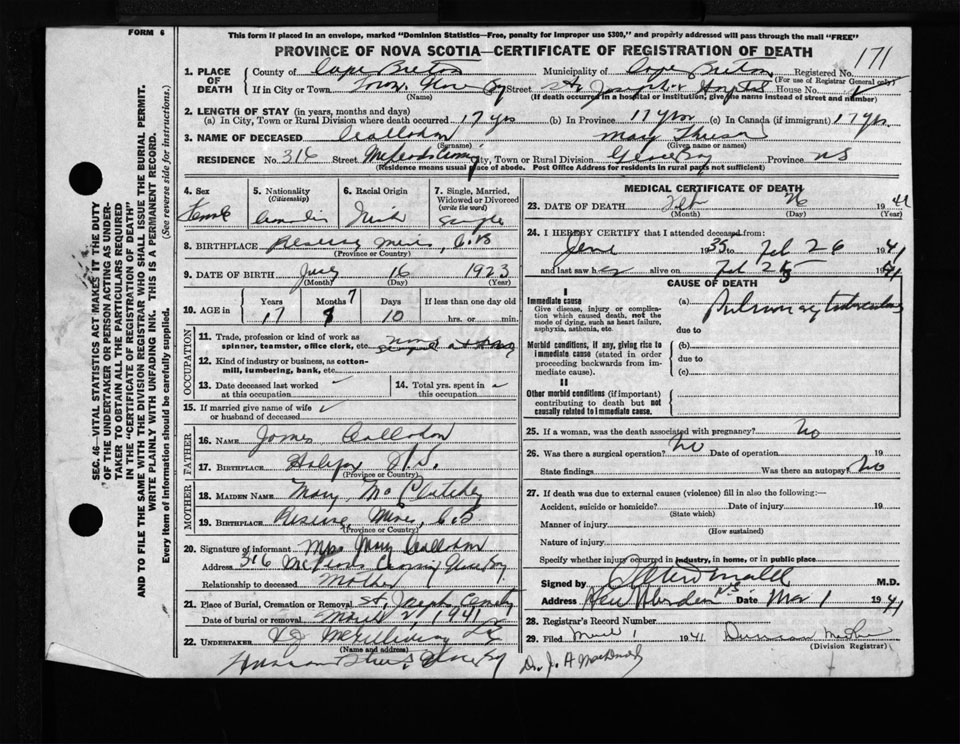 FORM 6
This form if placed in an envelope, marked "Dominion Statistics—Free, penalty for improper use $300," and properly addressed will pass through the mail "FREE"
PROVINCE OF NOVA SCOTIA—CERTIFICATE OF REGISTRATION OF DEATH
171
1. PLACE OF DEATH County of Cape Breton Municipality of Cape Breton Registered No.
(For use of Registrar General only)
If in City or Town Street St. Joseph's Hospital House No.
(Name) (If death occurred in a hospital or institution, give the name instead of street and number)
2. LENGTH OF STAY (in years, months and days)
(a) In City, Town or Rural Division where death occurred 17 yrs (b) In Province 17 yrs (c) In Canada (if immigrant) 17 yrs
3. NAME OF DECEASED Callahan Mary
(Surname) (Given name or names)
RESIDENCE No. 316 Street City, Town or Rural Division Glace Bay Province NS
(Residence means usual place of abode. Post Office Address for residents in rural parts not sufficient)
4. Sex Female
5. Nationality (Citizenship) Canadian
6. Racial Origin Irish
7. Single, Married, Widowed or Divorced (write the word) Single
8. BIRTHPLACE Reserve Mines, C.B
(Province or Country)
9. DATE OF BIRTH July 16 1923
(Month) (Day) (Year)
10. AGE in Years Months Days If less than one day old
17 7 10 hrs. or min.
OCCUPATION
11. Trade, profession or kind of work as spinner, teamster, office clerk, etc.
12. Kind of industry or business, as cotton-mill, lumbering, bank, etc.
13. Date deceased last worked at this occupation
14. Total yrs. spent in this occupation
15. If married give name of wife or husband of deceased
FATHER
16. NAME James Callahan
17. BIRTHPLACE Halifax N.S.
(Province or Country)
MOTHER
18. MAIDEN NAME Mary
19. BIRTHPLACE Reserve Mines, C.B
(Province or Country)
20. Signature of informant Mrs Mary Callahan
Address 316 McLeods Crossing Glace Bay.
Relationship to deceased Mother
21. Place of Burial, Cremation or Removal St. Joseph Cemetery
Date of burial or removal 1941
22. UNDERTAKER
(Name and address)
Glace Bay
MEDICAL CERTIFICATE OF DEATH
23. DATE OF DEATH Feb 26 1941
(Month) (Day) (Year)
24. I HEREBY CERTIFY that I attended deceased from:
1935 to Feb 26 1941
and last saw her alive on Feb 1941
CAUSE OF DEATH
I
Immediate cause
Give disease, injury or complication which caused death, not the mode of dying, such as heart failure, asphyxia, asthenia, etc.
(a) Pulmonary tuberculosis
due to
Morbid conditions, if any, giving rise to immediate cause (stated in order proceeding backwards from immediate cause).
(b)
due to
(c)
II
Other morbid conditions (if important) contributing to death but not causally related to immediate cause.
25. If a woman, was the death associated with pregnancy? No
26. Was there a surgical operation? No Date of operation 19
State findings Was there an autopsy? No
27. If death was due to external causes (violence) fill in also the following:—
Accident, suicide or homicide? Date of injury 19
(State which)
Manner of injury
(How sustained)
Nature of injury
Specify whether injury occurred in industry, in home, or in public place
Signed by M.D.
Address New Aberdeen NS Date Mar 1 1941
28. Registrar's Record Number
29. Filed March 1 1941 Duncan
(Division Registrar)
Dr. J. A MacDonald
SEC. 46—VITAL STATISTICS ACT MAKES IT THE DUTY
OF THE UNDERTAKER OR PERSON ACTING AS UNDER-
TAKER TO OBTAIN ALL THE PARTICULARS REQUIRED
IN THE "CERTIFICATE OF REGISTRATION OF DEATH"
AND TO FILE THE SAME WITH THE DIVISION REGISTRAR WHO SHALL ISSUE THE BURIAL PERMIT.
WRITE PLAINLY WITH UNFADING INK. THIS IS A PERMANENT RECORD.
Every item of information should be carefully supplied. (See reverse side for instructions.)